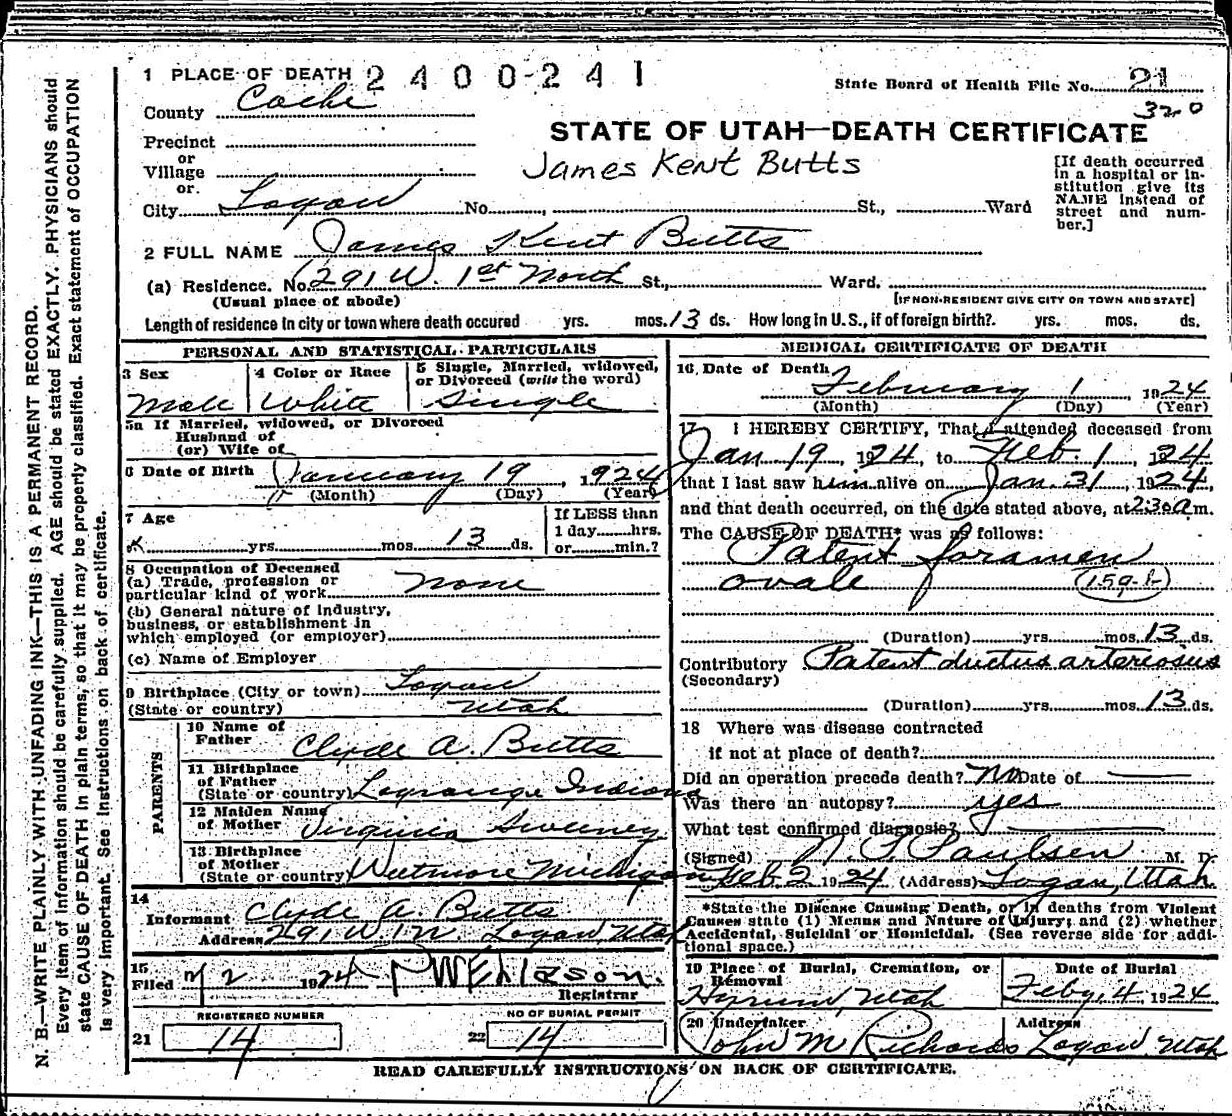 1 PLACE OF DEATH 2400-241
State Board of Health File No. 21
County Cache
320
Precinct
STATE OF UTAH—DEATH CERTIFICATE
or
Village
James Kent Butts
[If death occurred in a hospital or institution give its NAME instead of street and number.]
or
City Logan No. St., Ward
2 FULL NAME James Kent Butts
(a) Residence. No. (291 W. 1st North St., Ward.
(Usual place of abode) [IF NON-RESIDENT GIVE CITY OR TOWN AND STATE]
Length of residence in city or town where death occured yrs. mos. 13 ds. How long in U.S., if of foreign birth? yrs. mos. ds.
PERSONAL AND STATISTICAL PARTICULARS
3 Sex
Male
4 Color or Race
White
5 Single, Married, widowed,
or Divorced (write the word)
Single
5a If Married, widowed, or Divorced
Husband of
(or) Wife of
6 Date of Birth January 19, 1924
(Month) (Day) (Year)
7 Age
yrs. mos. 13 ds.
If LESS than
1 day hrs.
or min.?
8 Occupation of Deceased
(a) Trade, profession or
particular kind of work none
(b) General nature of industry,
business, or establishment in
which employed (or employer)
(c) Name of Employer
9 Birthplace (City or town) Logan
(State or country) Utah
PARENTS
10 Name of
Father Clyde A. Butts
11 Birthplace
of Father
(State or country) Lagrange Indiana
12 Maiden Name
of Mother Virginia Sweeney
13 Birthplace
of Mother
(State or country) Wetmore Michigan
14
Informant Clyde A. Butts
Address 291 W. 1 N. Logan, Utah
15
Filed 2/2 1924
Registrar
REGISTERED NUMBER
21 14
NO OF BURIAL PERMIT
22 14
MEDICAL CERTIFICATE OF DEATH
16 Date of Death
February 1, 1924
(Month) (Day) (Year)
17 I HEREBY CERTIFY, That I attended deceased from
Jan 19, 1924, to Feb. 1, 1924
that I last saw him alive on Jan. 31, 1924,
and that death occurred, on the date stated above, at 2:30 a m.
The CAUSE OF DEATH* was as follows:
Patent foramen
ovale
(Duration) yrs. mos. 13 ds.
Contributory Patent ductus arteriosus
(Secondary)
(Duration) yrs. mos. 13 ds.
18 Where was disease contracted
if not at place of death?
Did an operation precede death? No Date of
Was there an autopsy? yes
What test confirmed diagnosis?
(Signed) Paulsen M. D.
Feb 2 1924 (Address) Logan, Utah
*State the Disease Causing Death, or in deaths from Violent
Causes state (1) Means and Nature of Injury; and (2) whether
Accidental, Suicidal or Homicidal. (See reverse side for addi-
tional space.)
19 Place of Burial, Cremation, or
Removal
Hyrum, Utah
Date of Burial
Feby. 4, 1924
20 Undertaker
John M Richards
Address
Logan, Utah
READ CAREFULLY INSTRUCTIONS ON BACK OF CERTIFICATE.
N. B.—WRITE PLAINLY WITH UNFADING INK—THIS IS A PERMANENT RECORD.
Every item of information should be carefully supplied. AGE should be stated EXACTLY. PHYSICIANS should
state CAUSE OF DEATH in plain terms, so that it may be properly classified. Exact statement of OCCUPATION
is very important. See instructions on back of certificate.